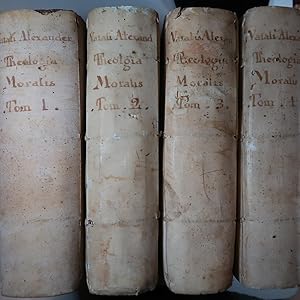 Natali Alexander
Theologia
Moralis
Tom 1.
Natali Alexand
Theologia
Moralis
Tom. 2.
Natali Alexan
Theologia
Moralis
Tom. 3.
Natali Alexa
Theologia
Morali
Tom. 4